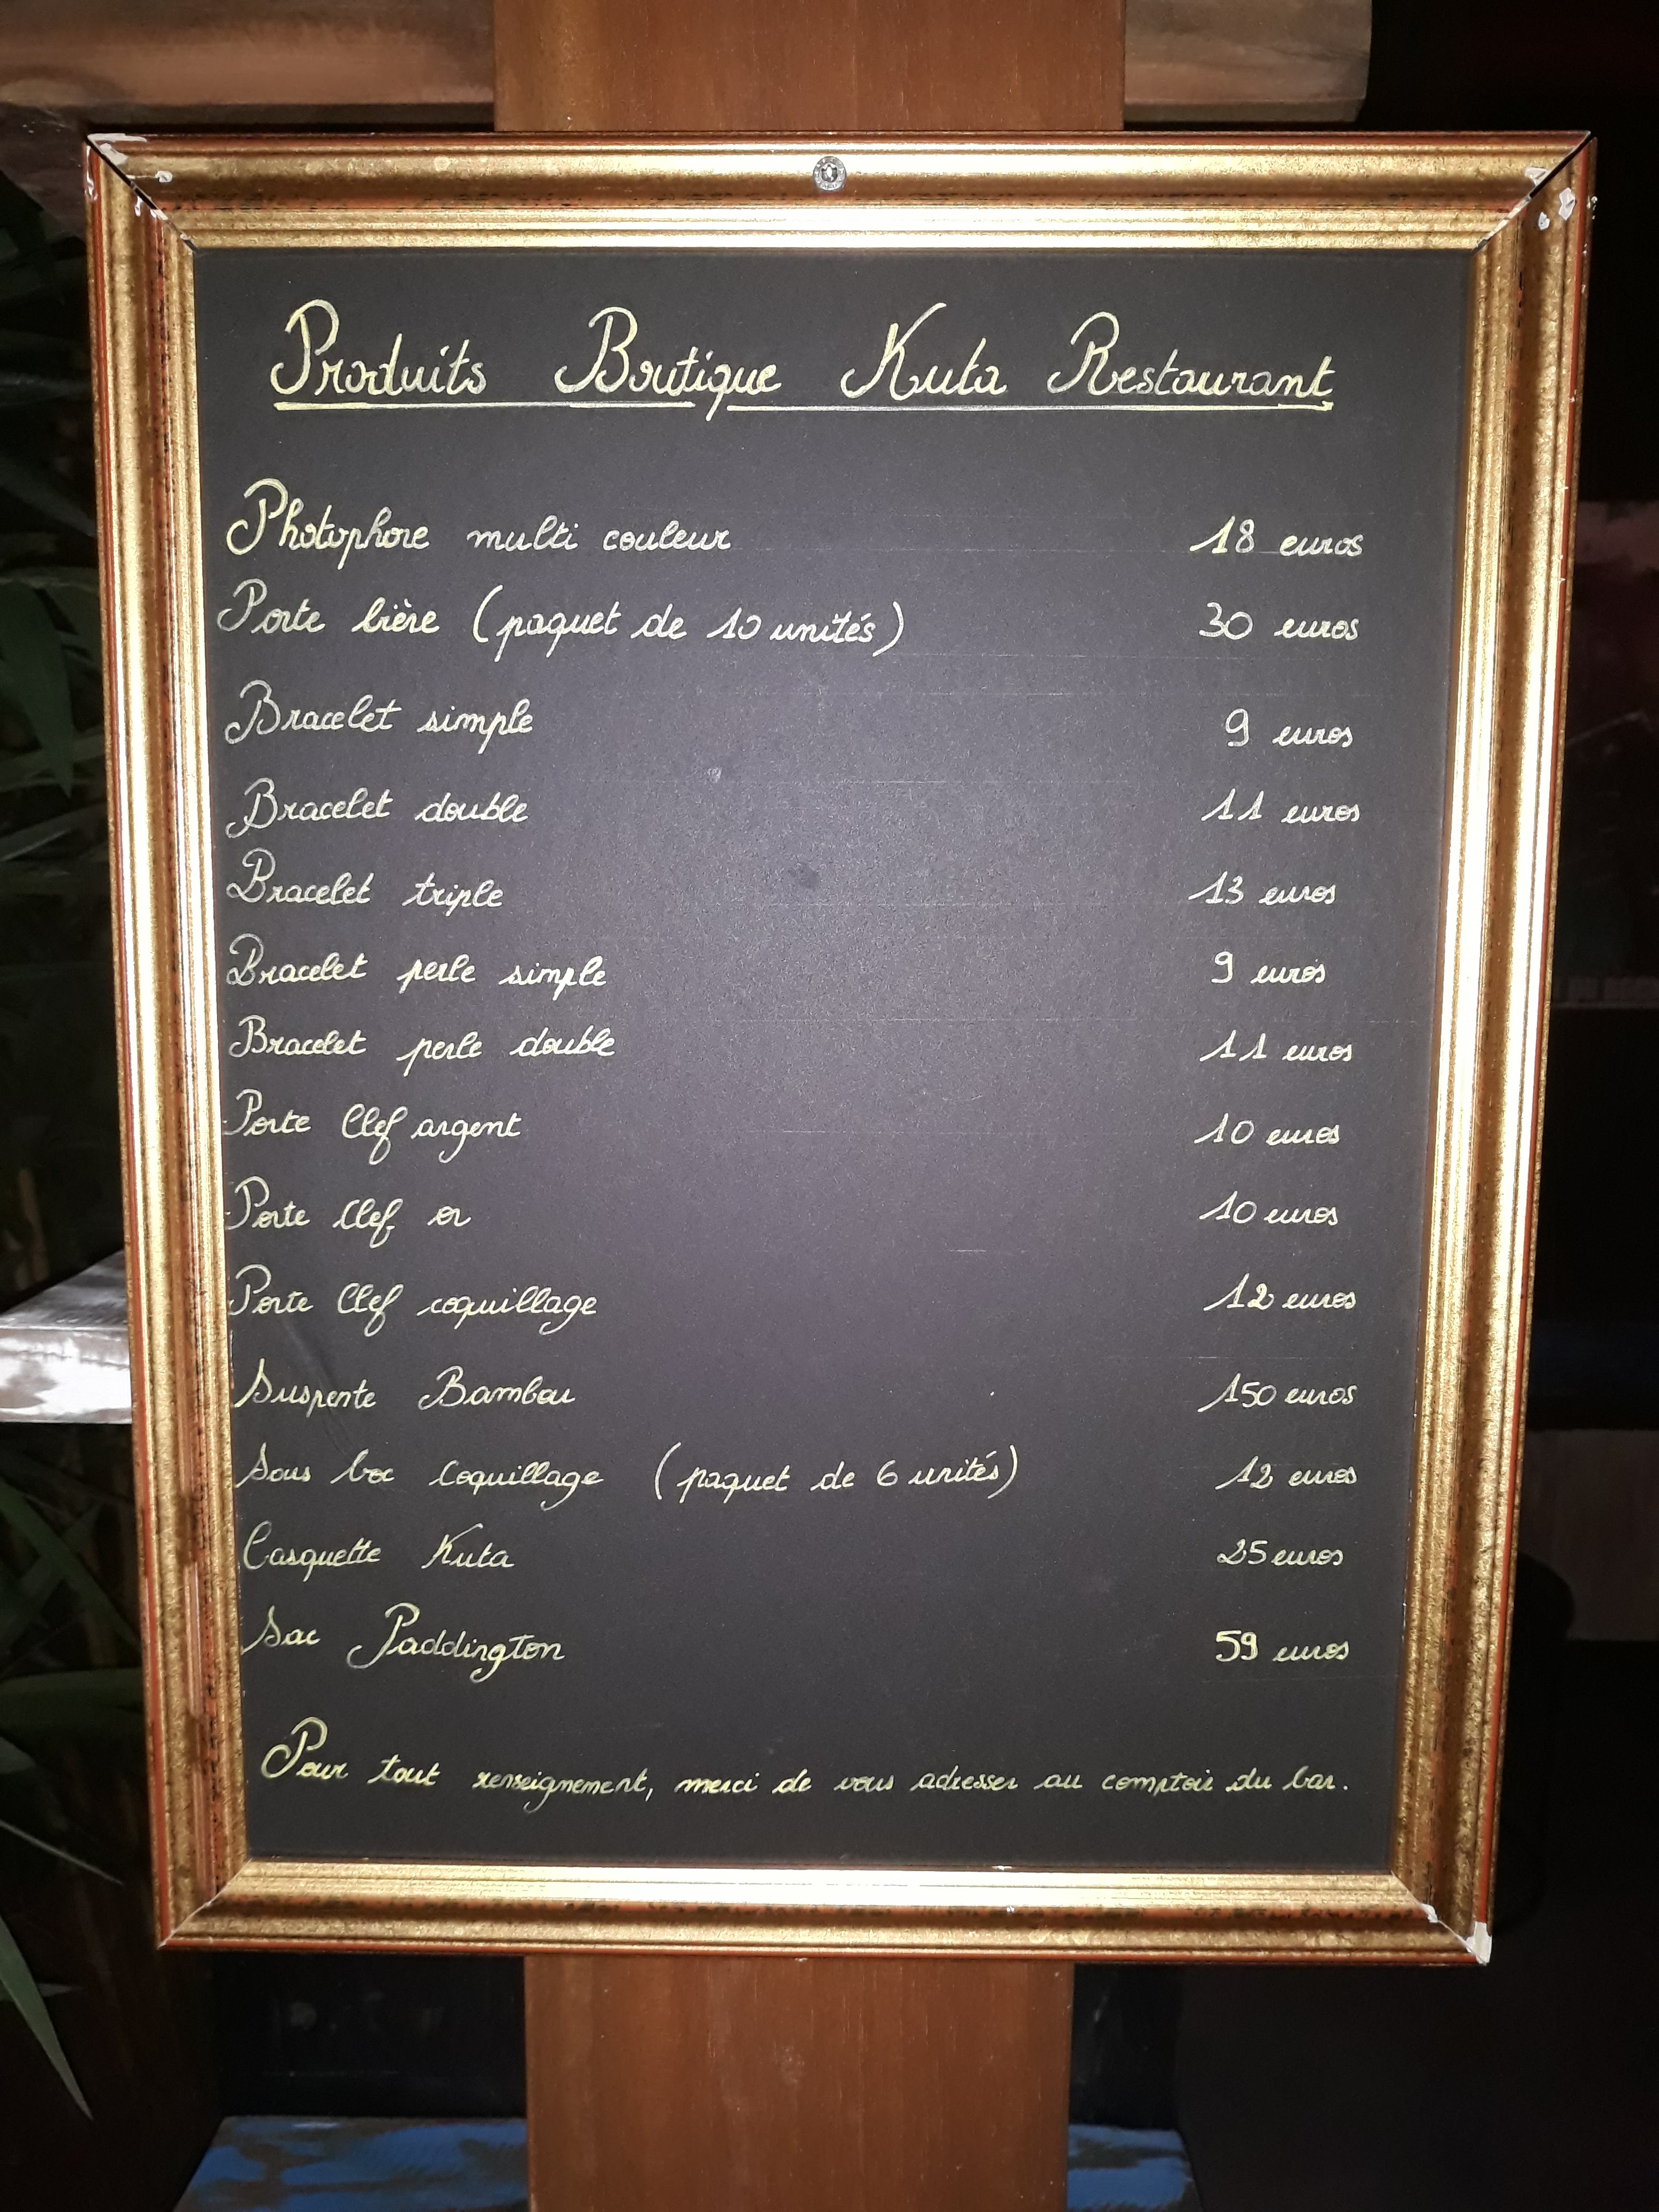 Produits Boutique Kuta Restaurant
Photophore multi couleur 18 euros
Porte bière (paquet de 10 unités) 30 euros
Bracelet simple 9 euros
Bracelet double 11 euros
Bracelet triple 13 euros
Bracelet perle simple 9 euros
Bracelet perle double 11 euros
Porte Clef argent 10 euros
Porte Clef or 10 euros
Porte Clef coquillage 12 euros
Suspente Bambou 150 euros
Sous boc Coquillage (paquet de 6 unités) 12 euros
Casquette Kuta 25 euros
Sac Paddington 59 euros
Pour tout renseignement, merci de vous adresser au comptoir du bar.